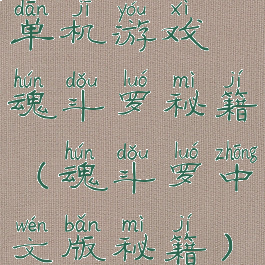 dān jī yóu xì
单机游戏
hún dǒu luó mì jí
魂斗罗秘籍
hún dǒu luó zhōng
（魂斗罗中
wén bǎn mì jí
文版秘籍）